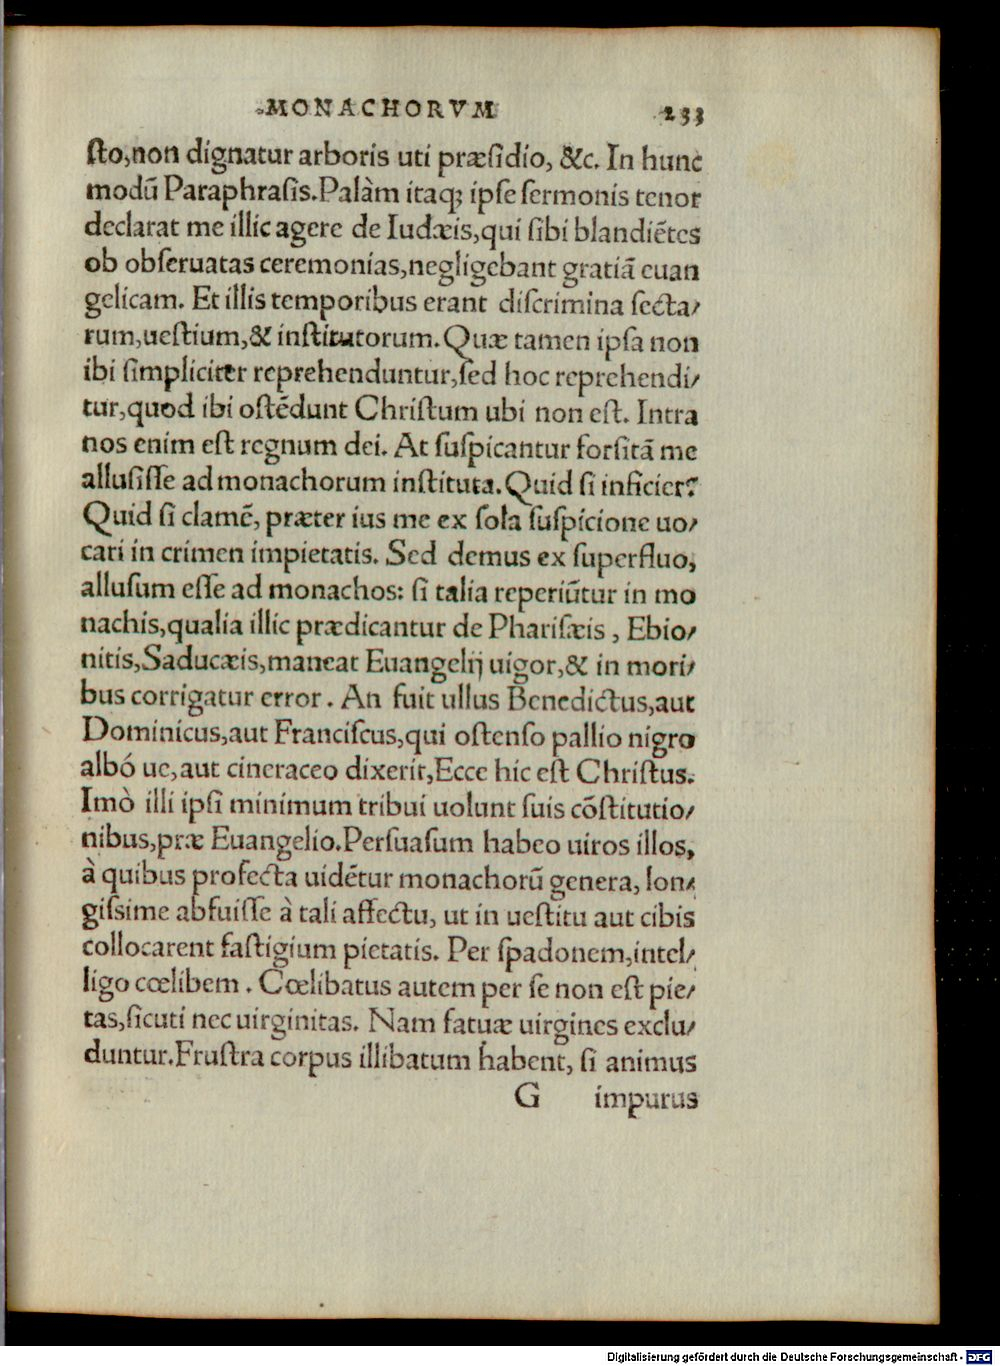 MONACHORVM 233
ſto,non dignatur arboris uti præſidio, &c. In hunc
modū Paraphraſis.Palàm itaq; ipſe ſermonis tenor
declarat me illic agere de Iudæis,qui ſibi blandiētes
ob obſeruatas ceremonias,negligebant gratiā euan
gelicam. Et illis temporibus erant diſcrimina ſecta/
rum,ueſtium,& inſtitutorum.Quæ tamen ipſa non
ibi ſimpliciter reprehenduntur,ſed hoc reprehendi/
tur,quod ibi oſtēdunt Chriſtum ubi non eſt. Intra
nos enim eſt regnum dei. At ſuſpicantur forſitā me
alluſiſſe ad monachorum inſtituta.Quid ſi inficier?
Quid ſi clamē, præter ius me ex ſola ſuſpicione uo/
cari in crimen impietatis. Sed demus ex ſuperfluo,
alluſum eſſe ad monachos: ſi talia reperiūtur in mo
nachis,qualia illic prædicantur de Phariſæis , Ebio/
nitis,Saducæis,maneat Euangelij uigor,& in mori/
bus corrigatur error . An fuit ullus Benedictus,aut
Dominicus,aut Franciſcus,qui oſtenſo pallio nigro
albó ue,aut cineraceo dixerit,Ecce hic eſt Chriſtus.
Imò illi ipſi minimum tribui uolunt ſuis cōſtitutio/
nibus,præ Euangelio.Perſuaſum habeo uiros illos,
à quibus profecta uidētur monachorū genera, lon/
giſsime abfuiſſe à tali affectu, ut in ueſtitu aut cibis
collocarent faſtigium pietatis. Per ſpadonem,intel/
ligo cœlibem . Cœlibatus autem per ſe non eſt pie/
tas,ſicuti nec uirginitas. Nam fatuæ uirgines exclu/
duntur.Fruſtra corpus illibatum habent, ſi animus
G impurus
Digitalisierung gefördert durch die Deutsche Forschungsgemeinschaft - DFG